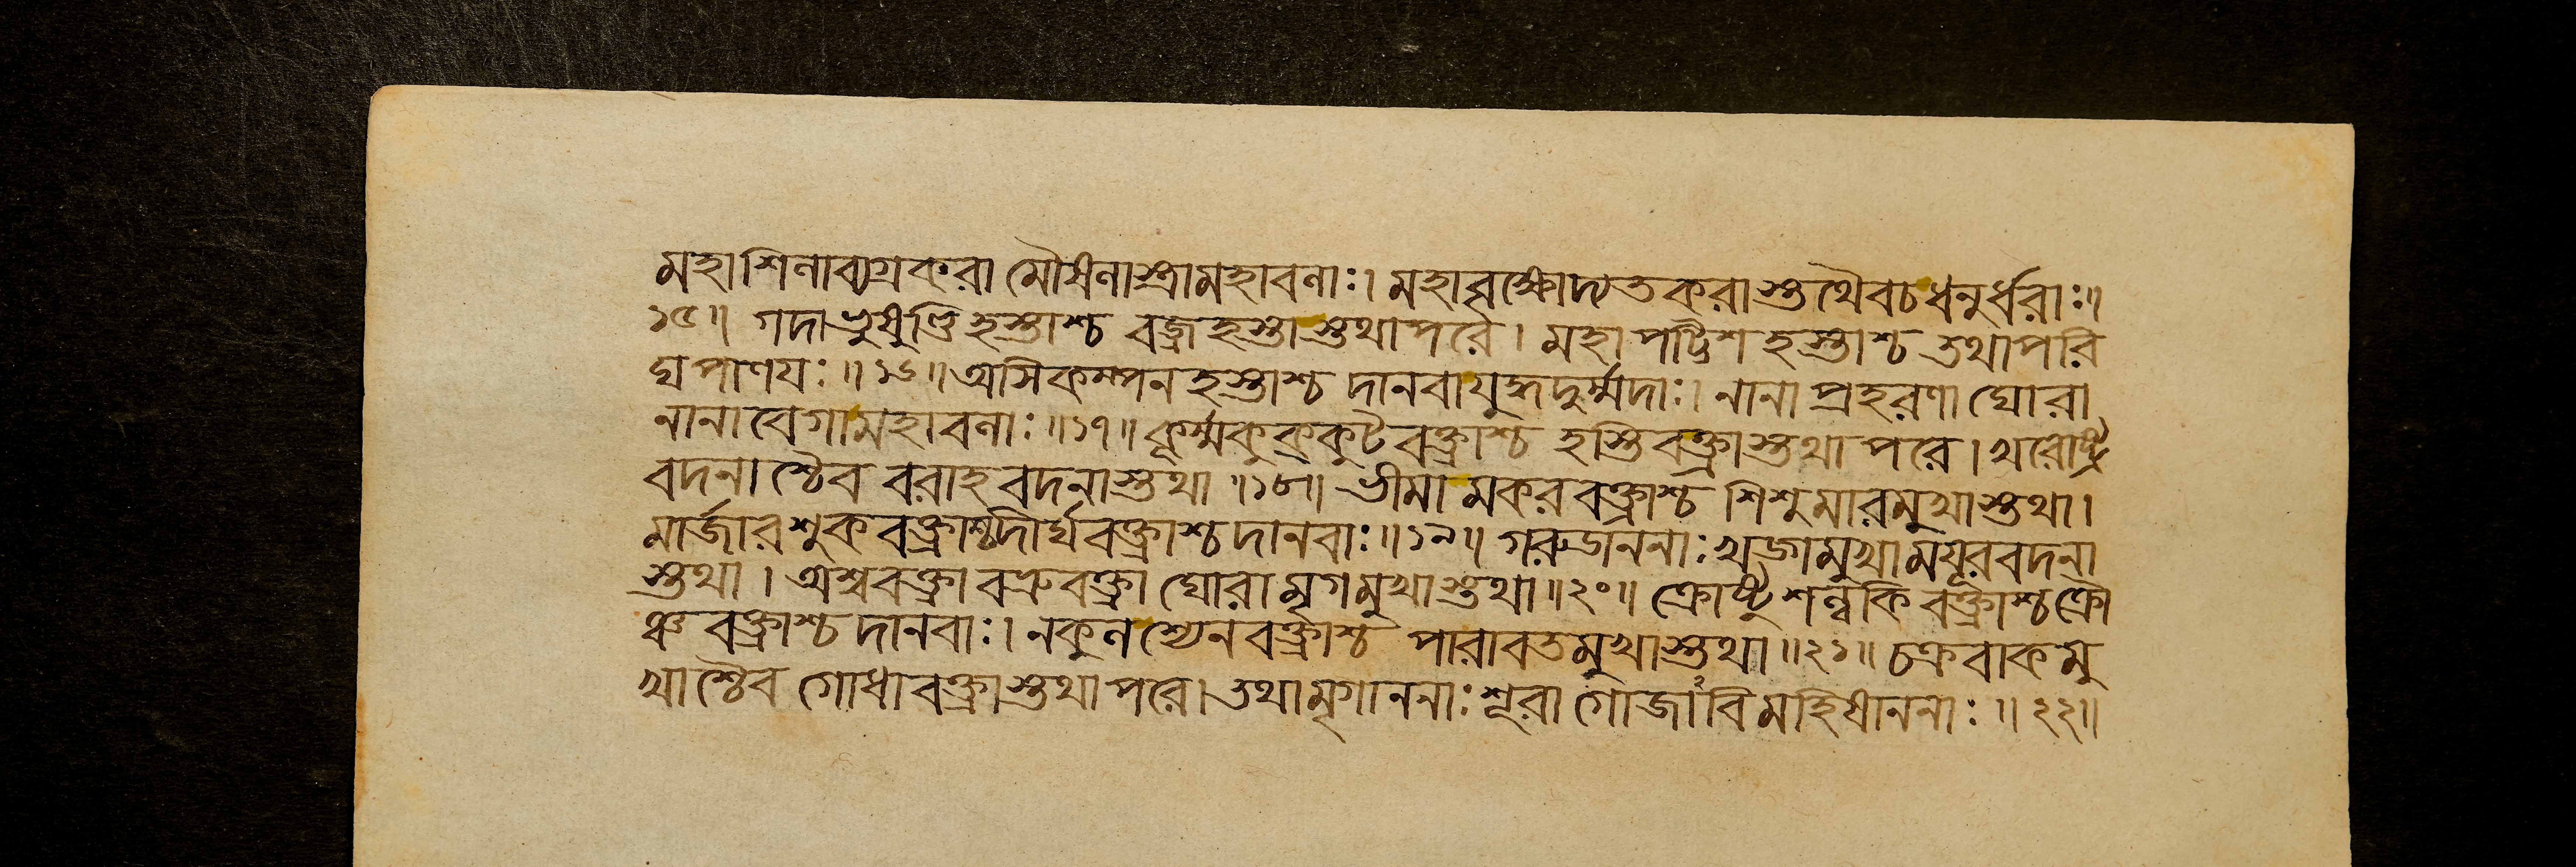 মহাশিলাব্যগ্রকরা মৌষলাস্ত্রামহাবলাঃ। মহাবৃক্ষোদ্যতকরাস্তথৈবচধনুর্ধরাঃ॥
১৫॥ গদাভুষুণ্ডিহস্তাশ্চ বজ্রহস্তাস্তথাপরে। মহাপট্টিশহস্তাশ্চ তথাপরি
ঘপাণযঃ॥১৬॥অসিকম্পনহস্তাশ্চ দানবাযুদ্ধদুর্ম্মদাঃ। নানাপ্রহরণা ঘোরা
নানাবেগামহাবলাঃ॥১৭॥কূর্ম্মকুক্কুটবক্ত্রাশ্চ হস্তিবক্ত্রাস্তথাপরে। খরোষ্ট্র
বদনাশ্চৈব বরাহবদনাস্তথা॥১৮॥ ভীমা মকরবক্ত্রাশ্চ শিশুমারমুখাস্তথা।
মার্জারশুকবক্ত্রাশ্চদীর্ঘবক্ত্রাশ্চদানবাঃ॥১৯॥ গরুডাননাঃখড্গমুখামযূরবদনা
স্তথা। অশ্ববক্ত্রা বভ্রুবক্ত্রা ঘোরামৃগমুখাস্তথা॥২০॥ ক্রোষ্টুশল্লকিবক্ত্রাশ্চক্রৌ
ঞ্চবক্ত্রাশ্চ দানবাঃ। নকুলশ্যেনবক্ত্রাশ্চ পারাবতমুখাস্তথা॥২১॥চক্রবাকমু
খাশ্চৈব গোধাবক্ত্রাস্তথাপরে। তথামৃগাননাঃশূরা গোজাবিমহিষাননাঃ॥২২॥